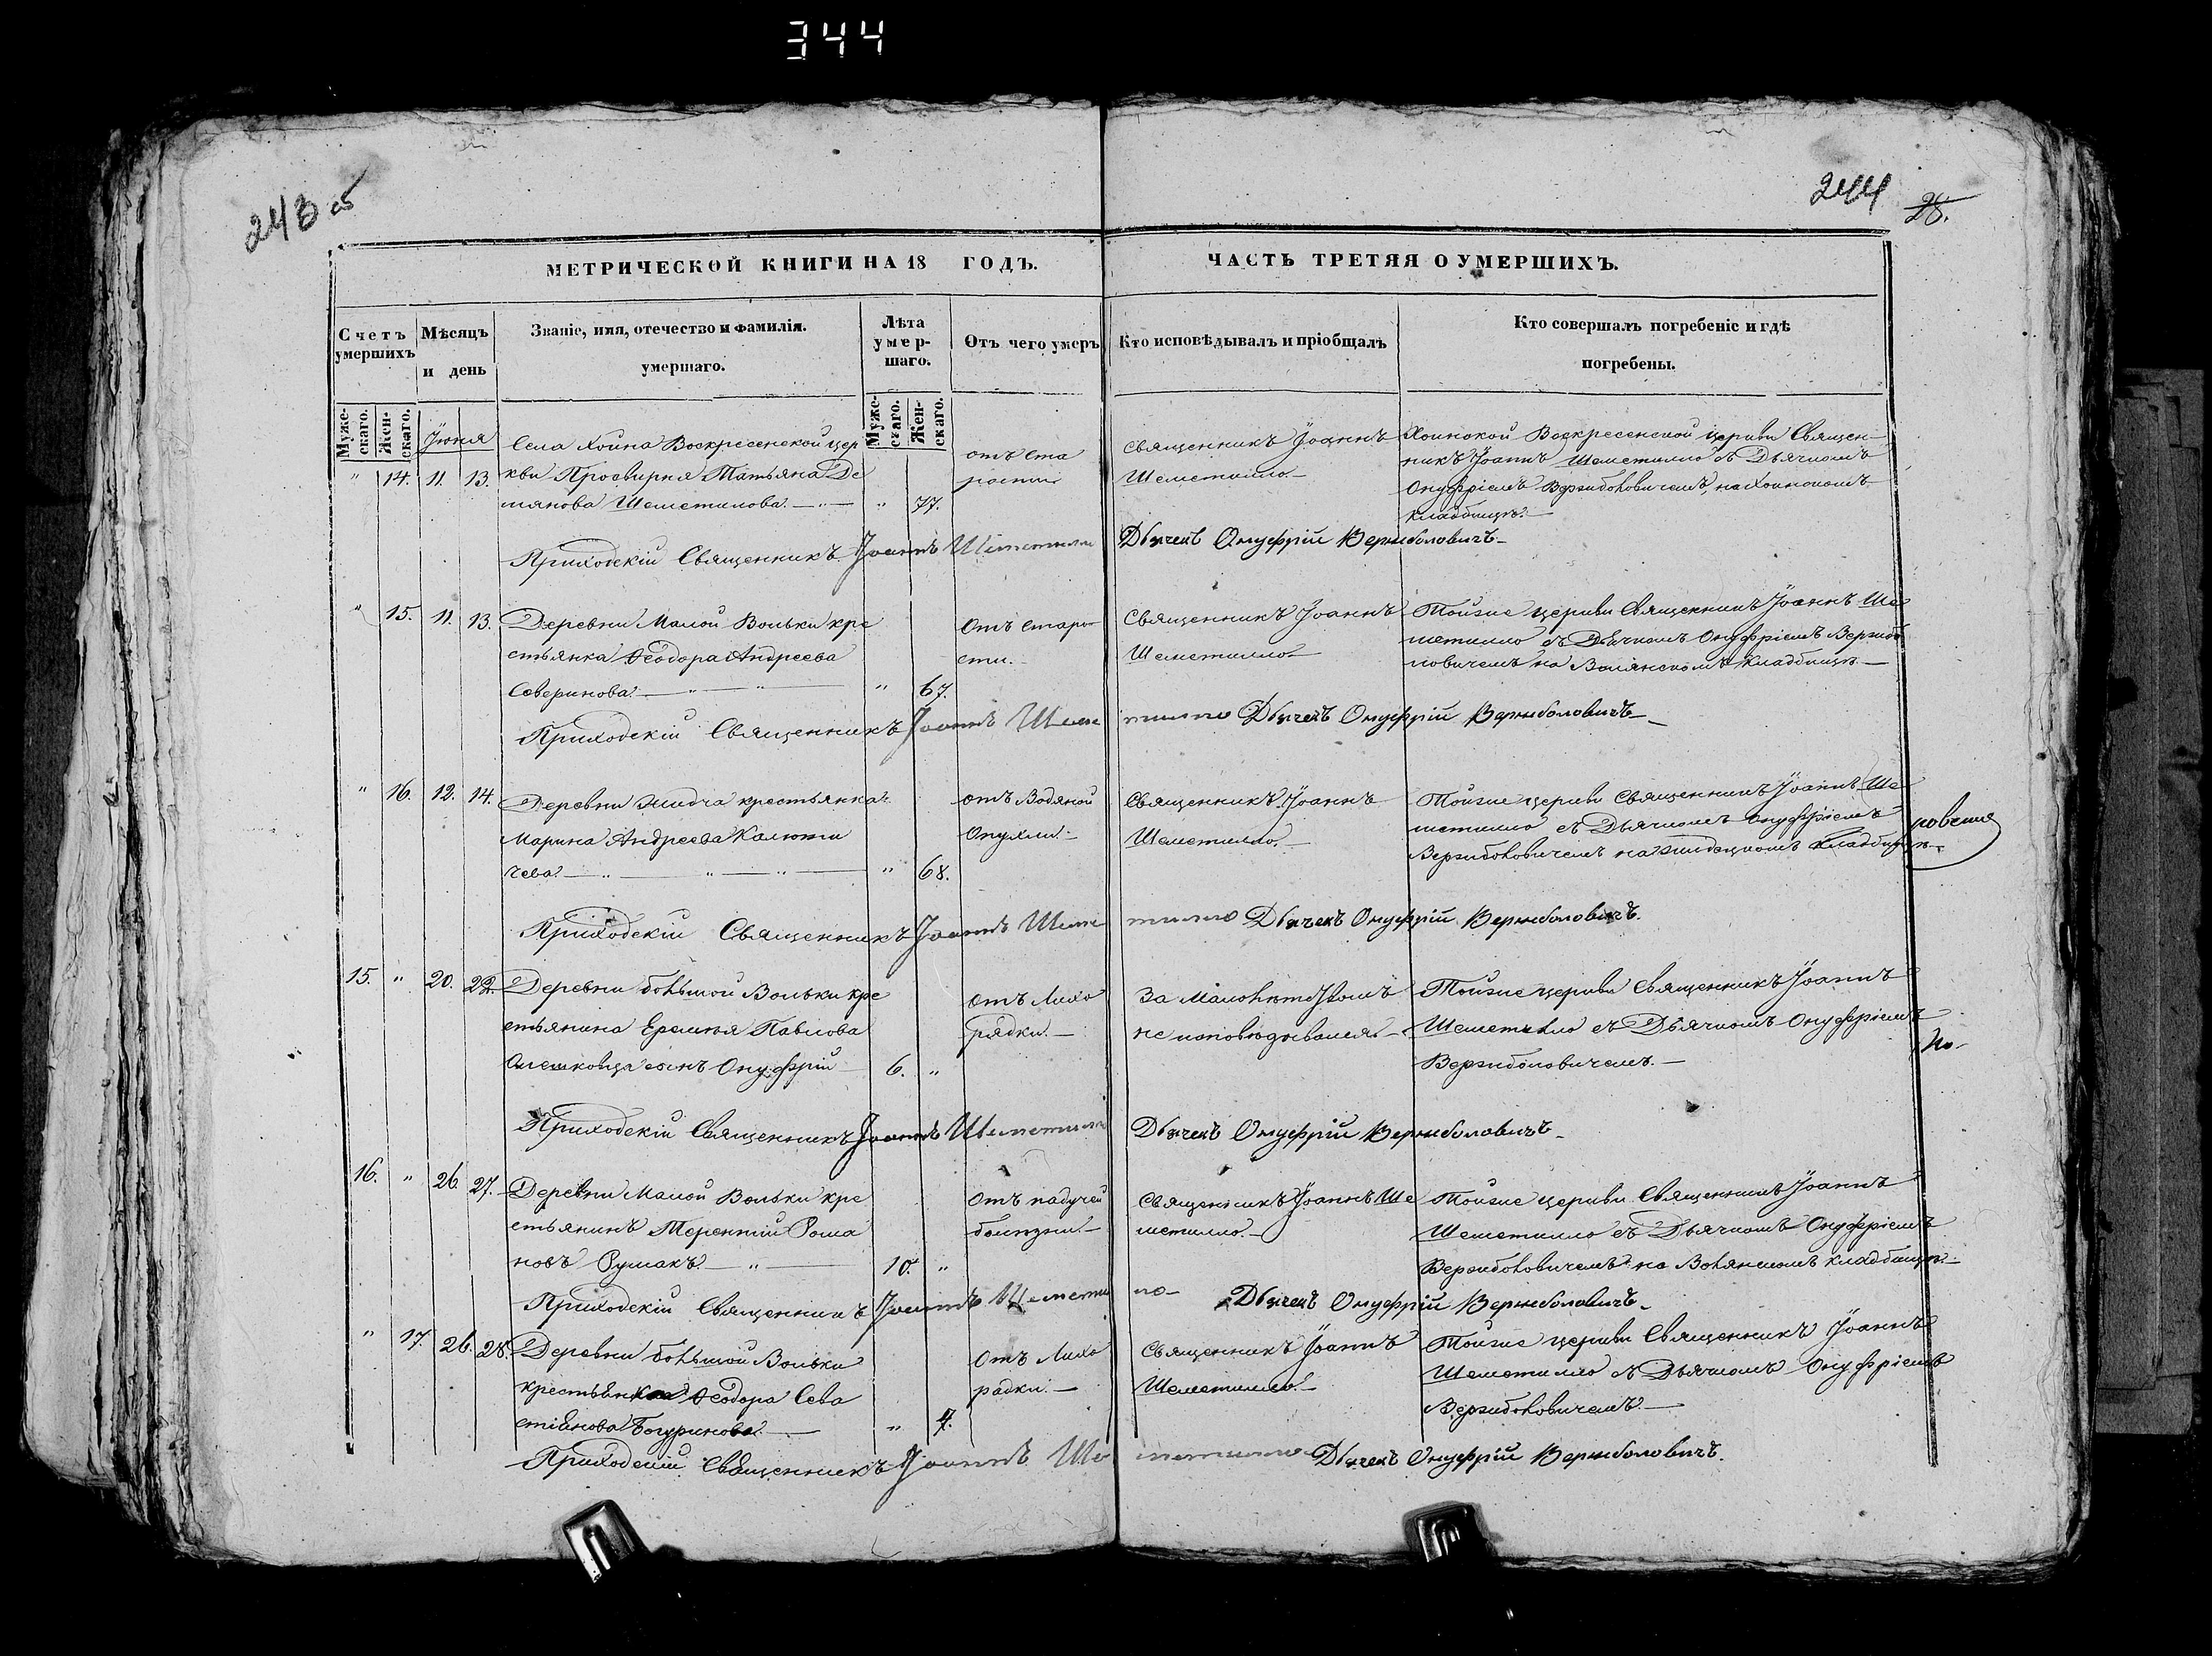 344
243 об
244
28.
МЕТРИЧЕСКОЙ КНИГИ НА 18 ГОДЪ.
ЧАСТЬ ТРЕТЯЯ О УМЕРШИХЪ.
Счетъ умершихъ
Мѣсяцъ и день
Званіе, имя, отечество и фамилія.
умершаго.
Лѣта умер-шаго.
Отъ чего умеръ
Кто исповѣдывалъ и пріобщалъ
Кто совершалъ погребеніе и гдѣ
погребены.
Муже-скаго.
Жен-скаго.
Муже-скаго.
Жен-скаго.
Іюня
" 14. 11. 13.
Села Хойна Воскресенской цер
кви Просвирня Татьяна Де
мянова Шеметилова. " 77.
отъ ста
рости
Священникъ Іоаннъ
Шеметилло.
Хоинской Воскресенской церкви Священ-
никъ Іоаннъ Шеметилло съ Дьячкомъ
Онуфріемъ Вержиболовичемъ, на Хоинскомъ
кладбищѣ.
Приходскій Священникъ Іоаннъ Шеметилло
Дьячекъ Онуфрій Вержиболовичъ
" 15. 11. 13.
Деревни Малой Вольки кре
стьянка Ѳеодора Андреева
Северинова. " 67.
Отъ старо
сти.
Священникъ Іоаннъ
Шеметилло
Тойже церкви Священникъ Іоаннъ Ше
метилло съ Дьячкомъ Онуфріемъ Вержибо
ловичемъ на Волянскомъ кладбищѣ.
Приходскій Священникъ Іоаннъ Шеме
тилло Дьячекъ Онуфрій Вержиболовичъ
" 16. 12. 14.
Деревни Жидча крестьянка
Марина Андреева Калюжи
чева. " 68.
отъ Водяной
Опухли.
Священникъ Іоаннъ
Шеметилло.
Тойже церкви Священникъ Іоаннъ Ше
метилло съ Дьячкомъ Онуфріемъ
Вержиболовичемъ на Жидецкомъ кладбищѣ.
Приходскій Священникъ Іоаннъ Шеме
тилло Дьячекъ Онуфрій Вержиболовичъ.
15. " 20. 22.
Деревни большой Вольки кре
стьянина Еремѣя Павлова
Олешковца сынъ Онуфрій 6. "
отъ Лихо
рядки.
За малолѣтствомъ
не исповѣдывался.
Тойже церкви Священникъ Іоаннъ
Шеметилло съ Дьячкомъ Онуфріемъ
Вержиболовичемъ.
Приходскій Священникъ Іоаннъ Шеметилло
Дьячекъ Онуфрій Вержиболовичъ
16. " 26. 27.
Деревни Малой Вольки кре
стьянинъ Терентій Рома
новъ Румакъ. 10. "
Отъ падучей
болѣзни.
Священникъ Іоаннъ Ше
метилло.
Тойже церкви Священникъ Іоаннъ
Шеметилло съ Дьячкомъ Онуфріемъ
Вержиболовичемъ на Волянскомъ кладбищѣ.
Приходскій Священникъ Іоаннъ Шемети
ло
Дьячекъ Онуфрій Вержиболовичъ
" 17. 26. 28.
Деревни большой Вольки
крестьянка Ѳеодора Сева
стіянова Богуринова. " 7.
Отъ Лихо
радки.
Священникъ Іоаннъ
Шеметилло.
Тойже церкви Священникъ Іоаннъ
Шеметилло съ Дьячкомъ Онуфріемъ
Вержиболовичемъ.
Приходскій Священникъ Іоаннъ Ше
метилло Дьячекъ Онуфрій Вержиболовичъ.